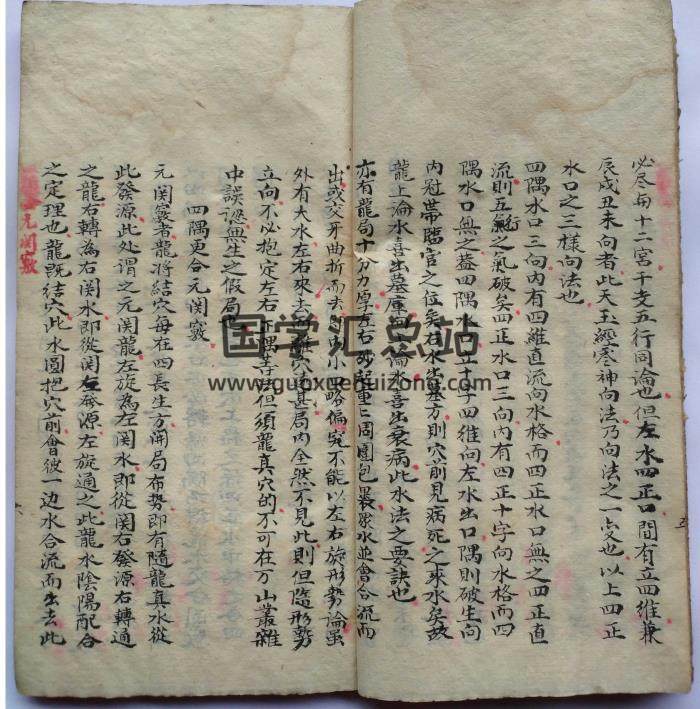 必尽與十二宮干支五行同論也但左水四正口間有立四維兼
辰戌丑未向者此天玉經寒神向法乃向法之一變也以上四正
水口之三樣向法也
四隅水口三向內有四維直流向水格而四正水口無之四正直
流則五行之氣破矣四正水口三向內有四正十字向水格而四
隅水口無之蓋四隅水口立十字四維向左水出口隅則破生向
內冠帶臨官之位矣右水出墓方則穴前見病死之來水矣故
龍上論水喜出墓庫向上論水喜出衰病此水法之要訣也
亦有龍局十分力厚左右砂起重二周圍包裹眾水並會合流而
出或交牙曲折而去 小 略偏 不能以左右旋形勢論雖
外有大水左右來去 離穴 甚 局內全然不見此則但隨形勢
立向不必抱定左右 正隅等 但須龍真穴的不可在万山叢雜
中誤認無生之假局
四隅更合元関竅
元関竅者龍將結穴每在四長生方開局布勢即有隨龍真水從
此發源此处謂之元関龍左旋為左関水即從関右發源右轉通
之龍右轉為右関水即從関左發源左旋通之此龍水陰陽配合
之定理也龍既結穴此水圓抱穴前會彼一边水合流而出去此
元関竅
五
六
国学汇总站
www.guoxuehuizong.com